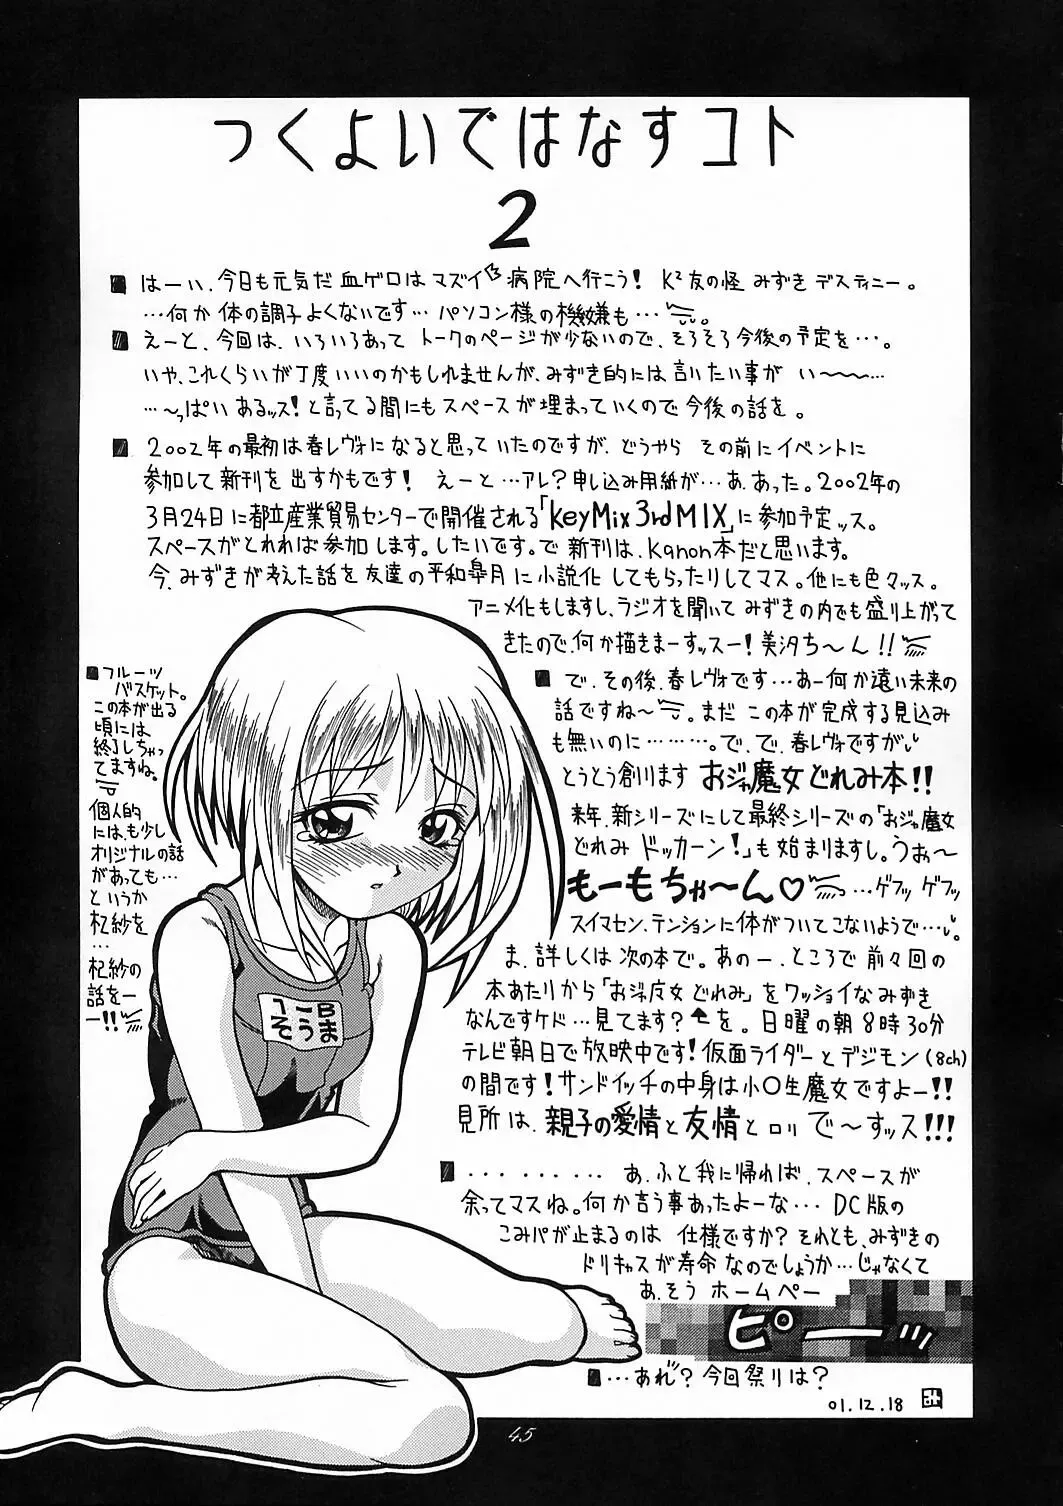 つくよいではなすコト
2
■ はーい、今日も元気だ血ゲロはマズイ 病院へ行こう! K²友の怪 みずき デスティニー。
…何か体の調子よくないです… パソコン様の機嫌も…。
■ えーと、今回は、いろいろあって トークのページが少ないので、そろそろ今後の予定を…。
いや、これくらいが丁度いいのかもしれませんが、みずき的には言いたい事が い〜〜〜…
…〜っぱい あるッス! と言ってる間にも スペースが埋まっていくので 今後の話を。
■ 2002年の最初は春レヴォになると思っていたのですが、どうやら その前にイベントに
参加して新刊を出すかもです! えーと…アレ?申し込み用紙が…あ、あった。2002年の
3月24日に都立産業貿易センターで開催される「KeyMix 3rd MIX」に参加予定ッス。
スペースがとれれば参加します。したいです。で 新刊は、Kanon本だと思います。
今、みずきが考えた話を友達の平和皐月に小説化してもらったりしてマス。他にも色々ッス。
アニメ化もしますし、ラジオを聞いて みずきの内でも盛り上がって
きたので、何か描きまーすッスー! 美汐ち〜ん!!
■ で、その後、春レヴォです…あー何か遠い未来の
話ですね〜。まだ この本が完成する見込み
も無いのに………。で、で、春レヴォですがい
とうとう創ります おジャ魔女どれみ本!!
来年、新シリーズにして最終シリーズの「おジャ魔女
どれみ ドッカーン!」も始まりますし。うぉ〜
もーもちゃ〜ん♡ …ゲフッ ゲフッ
スイマセン、テンションに体がついてこないようで…。
ま、詳しくは次の本で。あのー、ところで前々回の
本あたりから「おジャ魔女どれみ」をワッショイなみずき
なんですケド…見てます?↑を。日曜の朝8時30分
テレビ朝日で放映中です! 仮面ライダーとデジモン(8ch)
の間です! サンドイッチの中身は小〇生魔女ですよー!!
見所は、親子の愛情と友情とロリ で〜すッス!!!
■ ・・・・・・・・ あ、ふと我に帰れば、スペースが
余ってマスね。何か言う事あったよーな… DC版の
こみパが止まるのは 仕様ですか? それとも、みずきの
ドリキャスが寿命なのでしょうか…じゃなくて
あ、そう ホームペー
ピーッ
■ …あれ"? 今回祭りは?
01.12.18 み
■ フルーツ
バスケット。
この本が出る
頃には
終了しちゃっ
てますね。
個人的
には、も少し
オリジナルの話
があっても…
というか
杞紗を
…
杞紗の
話をー
ー!!
1B
そうま
こ
45